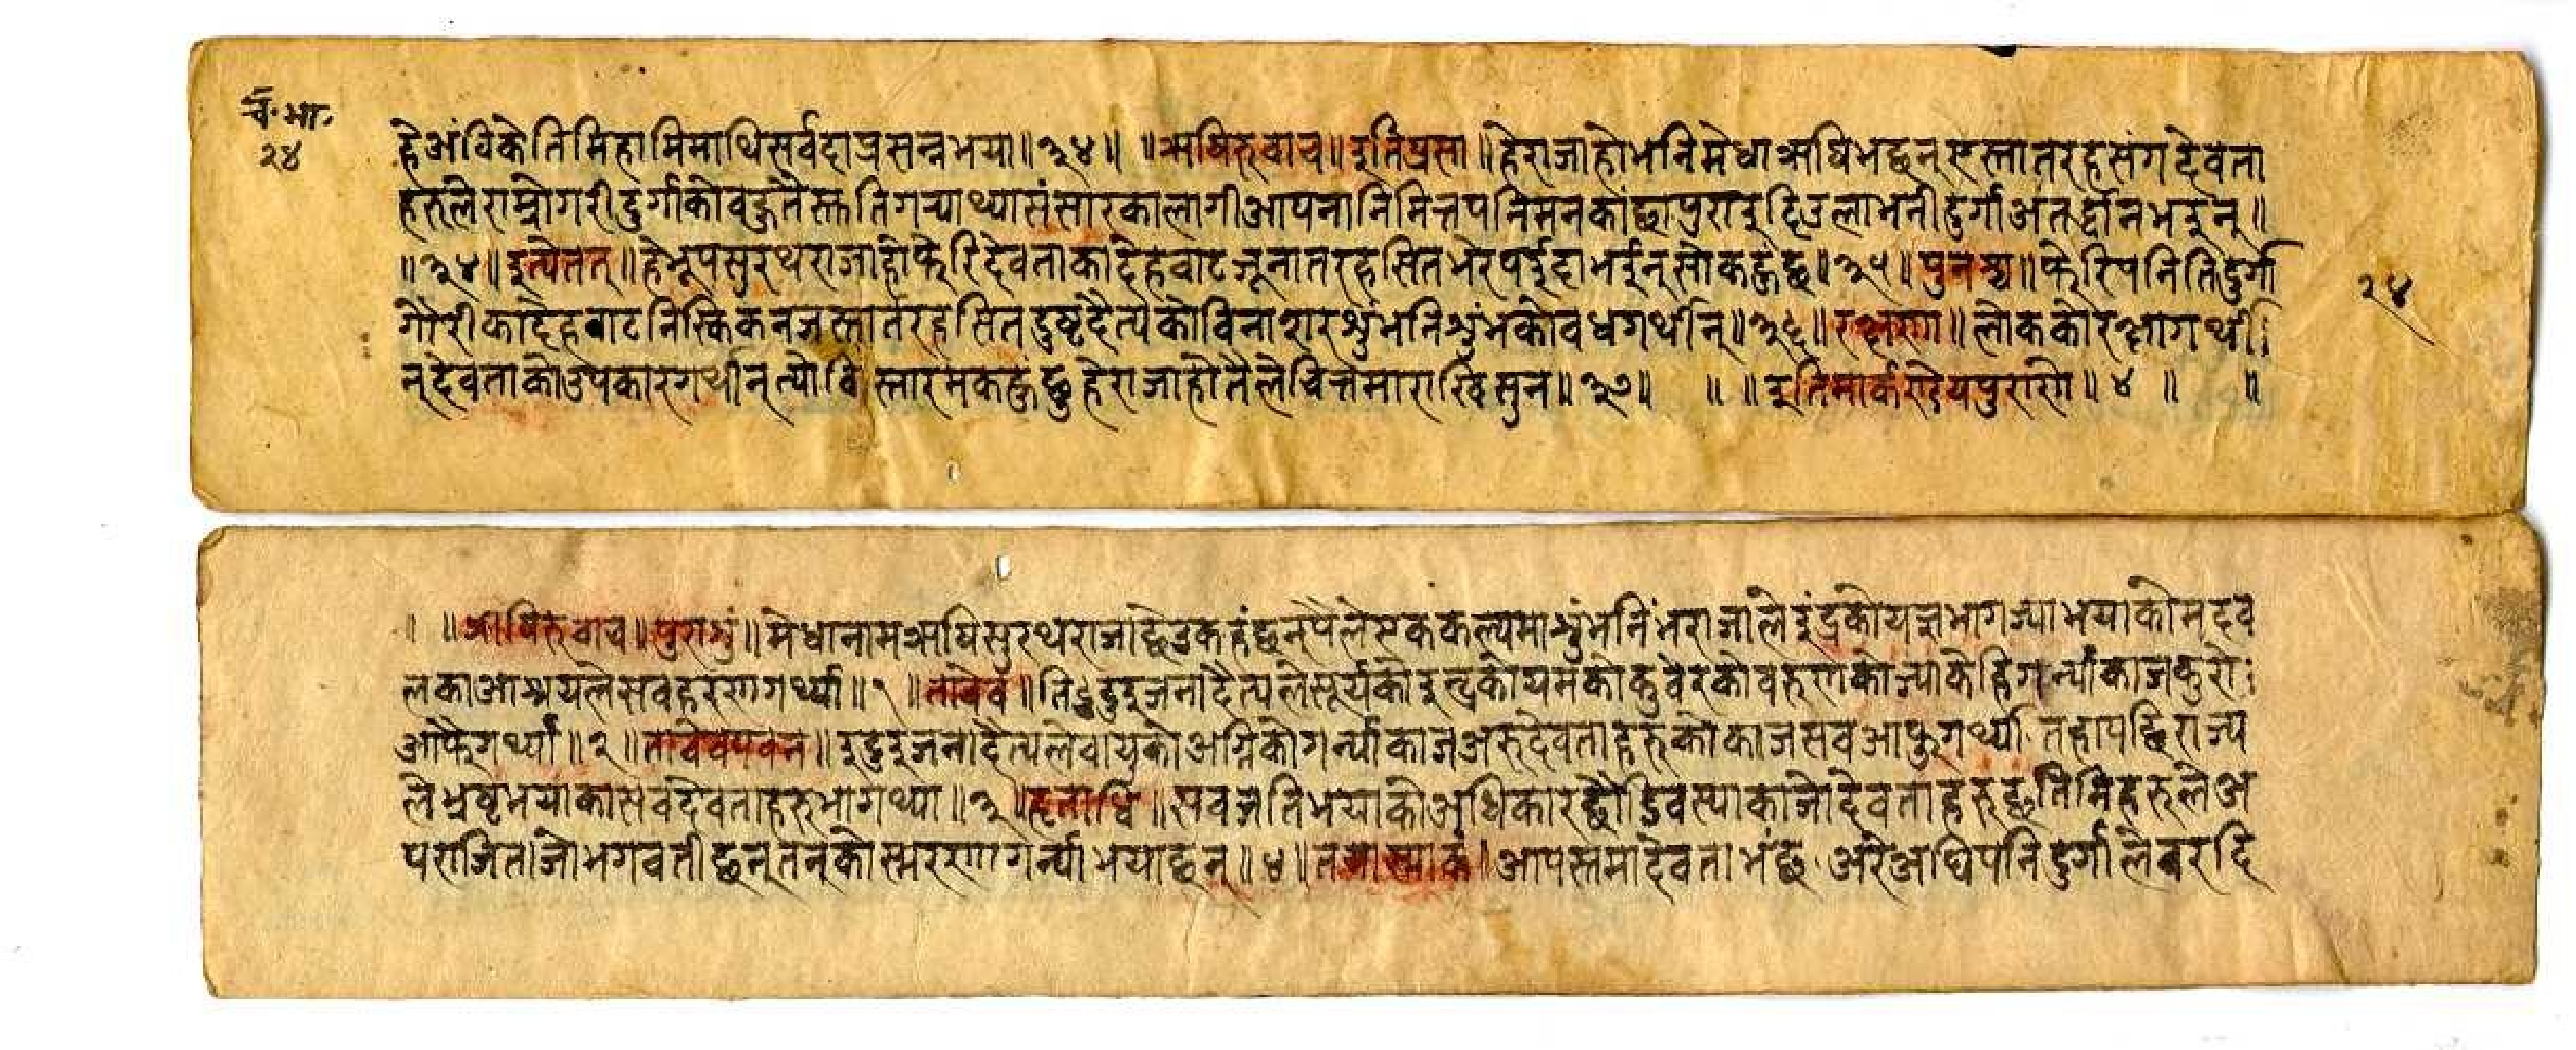 चं. भा.
२४
हेअंविकेतिमिहामिमाथिसर्वदाप्रसन्नभया॥३४॥ ॥ऋषिरुवाच॥इतिप्रसा॥हेराजाहोभनिमेधाऋषिभंछन्एस्तातरहसंगदेवता
हरुलेराम्रोगरीदुर्गाकोवहुतैस्तुतिगर्‍याथ्यासंसारकालागीआपनानिमित्तपनिमनकाइछापुराइदिउलाभनीदुर्गाअंतर्द्धानभइन्॥
॥३४॥इत्येतत्॥हेभूपसुरथराजाहोफेरिदेवताकादेहवाटजूनातरहसितभैरपर्इदाभईन्सोकहंछु॥३५॥पुनश्च॥फेरिपनितिदुर्गा
गौरीकादेहबाटनिस्किकनजस्तातरहसितदुष्टदैत्यकोविनाशरशुंभनिशुंभकोवधगर्थिन्॥३६॥रक्षणा॥लोककोरक्षागर्थी
न्देवताकोउपकारगर्थीन्त्योविस्तारमकहंछुहेराजाहोतैलेचित्तमाराखिसुन॥३७॥ ॥ ॥इतिमार्कण्डेयपुराणे॥४॥ ॥
२४
॥ ॥ऋषिरुवाच॥पुराशुं॥मेधानामऋषिसुरथराजाछेउकहंछन्पैलेएककल्पमाशुंभनिशुंभराजालेइंद्रकोयज्ञभागज्याभयाकोमदव
लकाआश्रयलेसवहरणगर्थ्या॥१॥तावेव॥तिदुइजनादैत्यलेसूर्यकोइन्द्रकोयमकोकुवेरकोवरुणकोज्याकेहिगर्न्याकाजकुरो
आफैगर्थ्या॥२॥तावेवपवन॥इदुइजनादैत्यलेवायुकोअग्निकोगर्न्याकाजअरुदेवताहरुकोकाजसवआफुगर्थ्यातहापछिराज्य
लेभ्रष्टभयाकासवदेवताहरुभागथ्या॥३॥हृताधि॥सवजतिभयाकोअधिकारछोडिवस्याकाजोदेवताहरुछन्तिमिहरुलेअ
पराजिताजोभगवतीछन्तन्कोस्मरणगर्न्याभयाछन्॥४॥तयास्माकं॥आपस्तमादेवताभंछन्अरेअघिपनिदुर्गालेबरदि